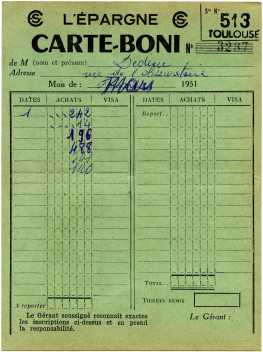 L'ÉPARGNE
Sle N° 513
TOULOUSE
CARTE-BONI N° 3287
de M (nom et prénom)
Adresse rue de l'observatoire
Mois de Mars 1951
DATES ACHATS VISA DATES ACHATS VISA
1 242 Report...
14
196
488
Total...
A reporter
Tickets remis
Le Gérant soussigné reconnait exactes
les inscriptions ci-dessus et en prend
la responsabilité.
Le Gérant :